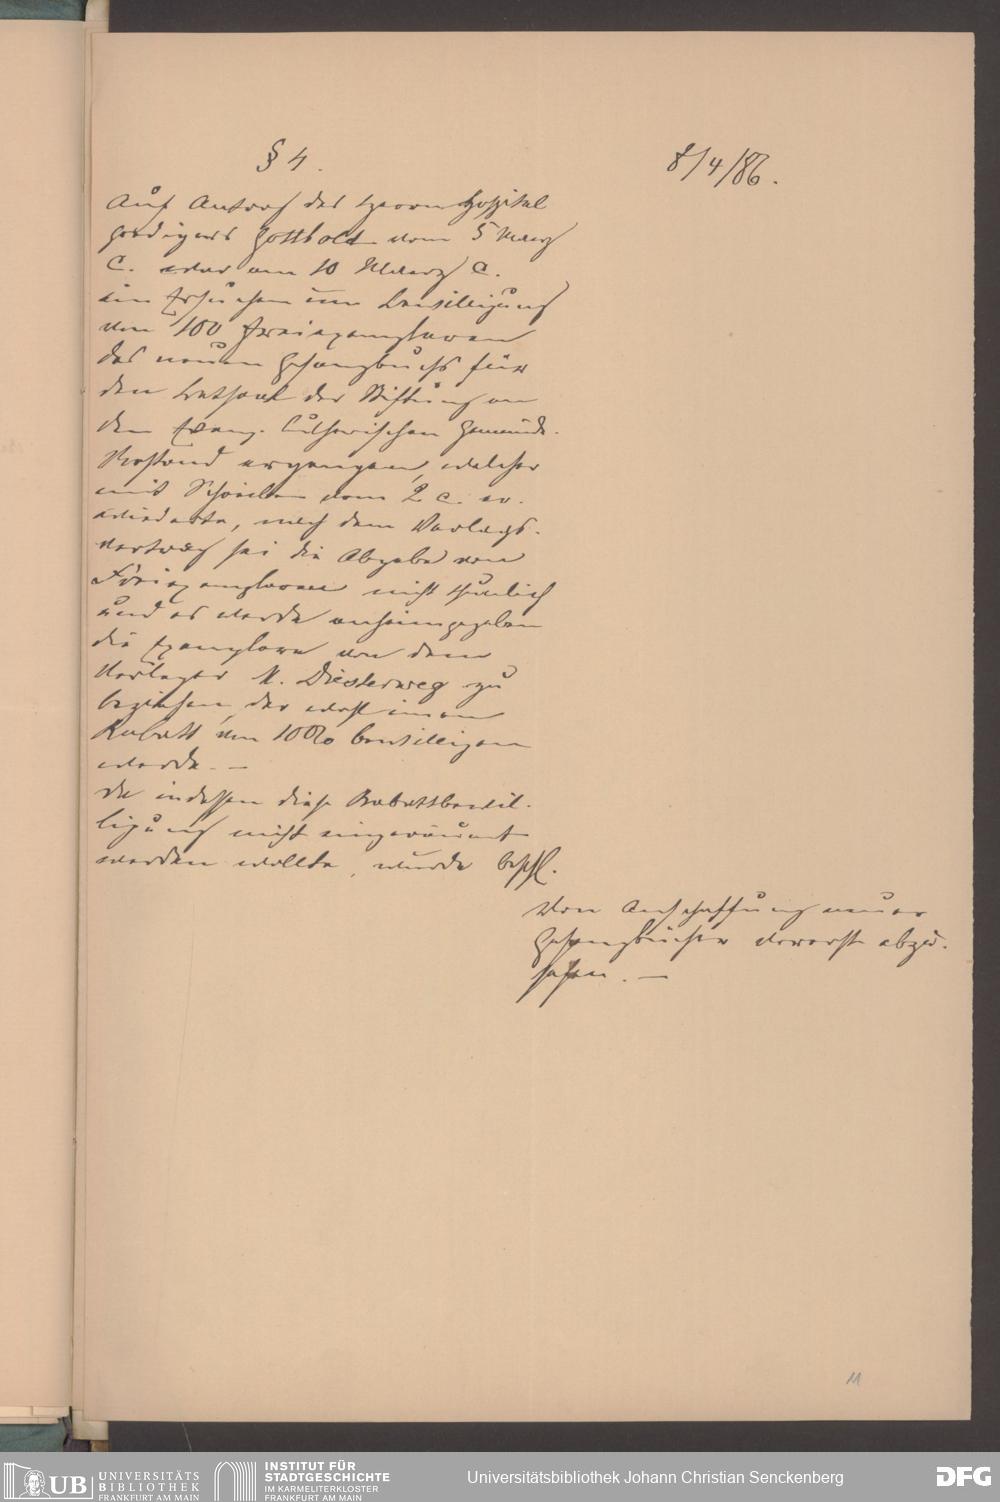 § 4.
8/4/86.
Auf Antrag des Herrn Hospital
predigers Gottbold vom 5 Maerz
c. war am 10 Maerz c.
ein Ersuchen um Bewilligung
von 100 Freiexemplaren
des neuen Gesangbuchs für
den Betsaal der Stiftung an
den Evang. lutherischen Gemeinde-
Vorstand ergangen, welcher
mit Schreiben vom 2 c. er-
wiederte, nach dem Verlags-
vertrag sei die Abgabe von
Freiexemplaren nicht thunlich
und es werde anheimgegeben
die Exemplare von dem
Verleger M. Diesterweg zu
beziehen, der wohl einen
Rabatt von 10% bewilligen
werde. —
Da indessen diese Rabattbewil-
ligung nicht eingeräumt
werden wollte, wurde beschl.
Von Anschaffung neuer
Gesangbücher vorerst abzu-
sehen. —
11
UB UNIVERSITÄTS
BIBLIOTHEK
FRANKFURT AM MAIN
INSTITUT FÜR
STADTGESCHICHTE
IM KARMELITERKLOSTER
FRANKFURT AM MAIN
Universitätsbibliothek Johann Christian Senckenberg
DFG